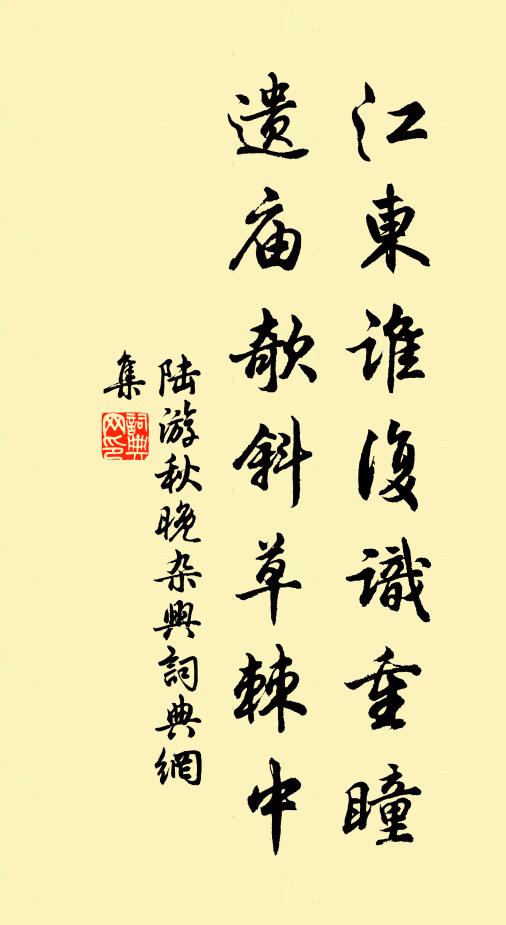 江東誰復識重瞳
遺庙欹斜草棘中
陆游秋晚杂興詞典網
集
詞典网印